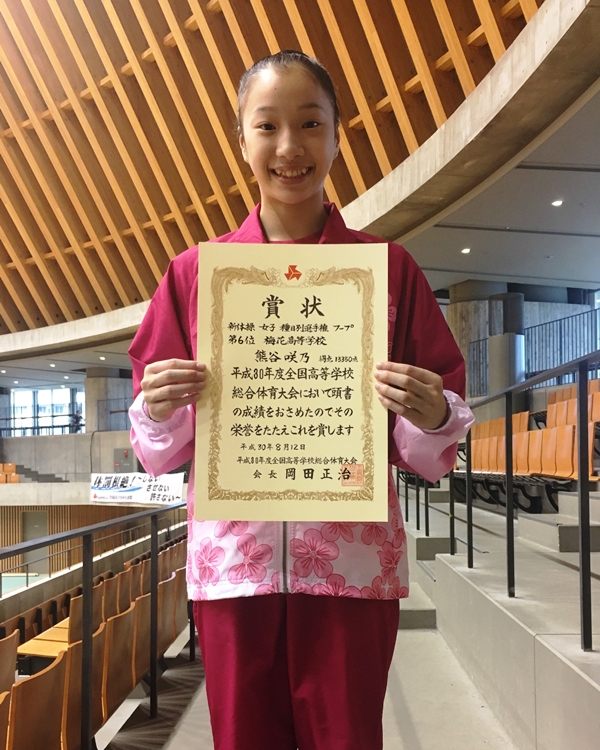 賞状
新体操 女子 種目別選手権 フープ
第6位 梅花高等学校
熊谷 咲乃 得点 13350点
平成30年度全国高等学校
総合体育大会において頭書
の成績をおさめたのでその
栄誉をたたえこれを賞します
平成30年8月12日
平成30年度全国高等学校総合体育大会
会長 岡田正治
体罰根絶!
～しない
させない
許さない～